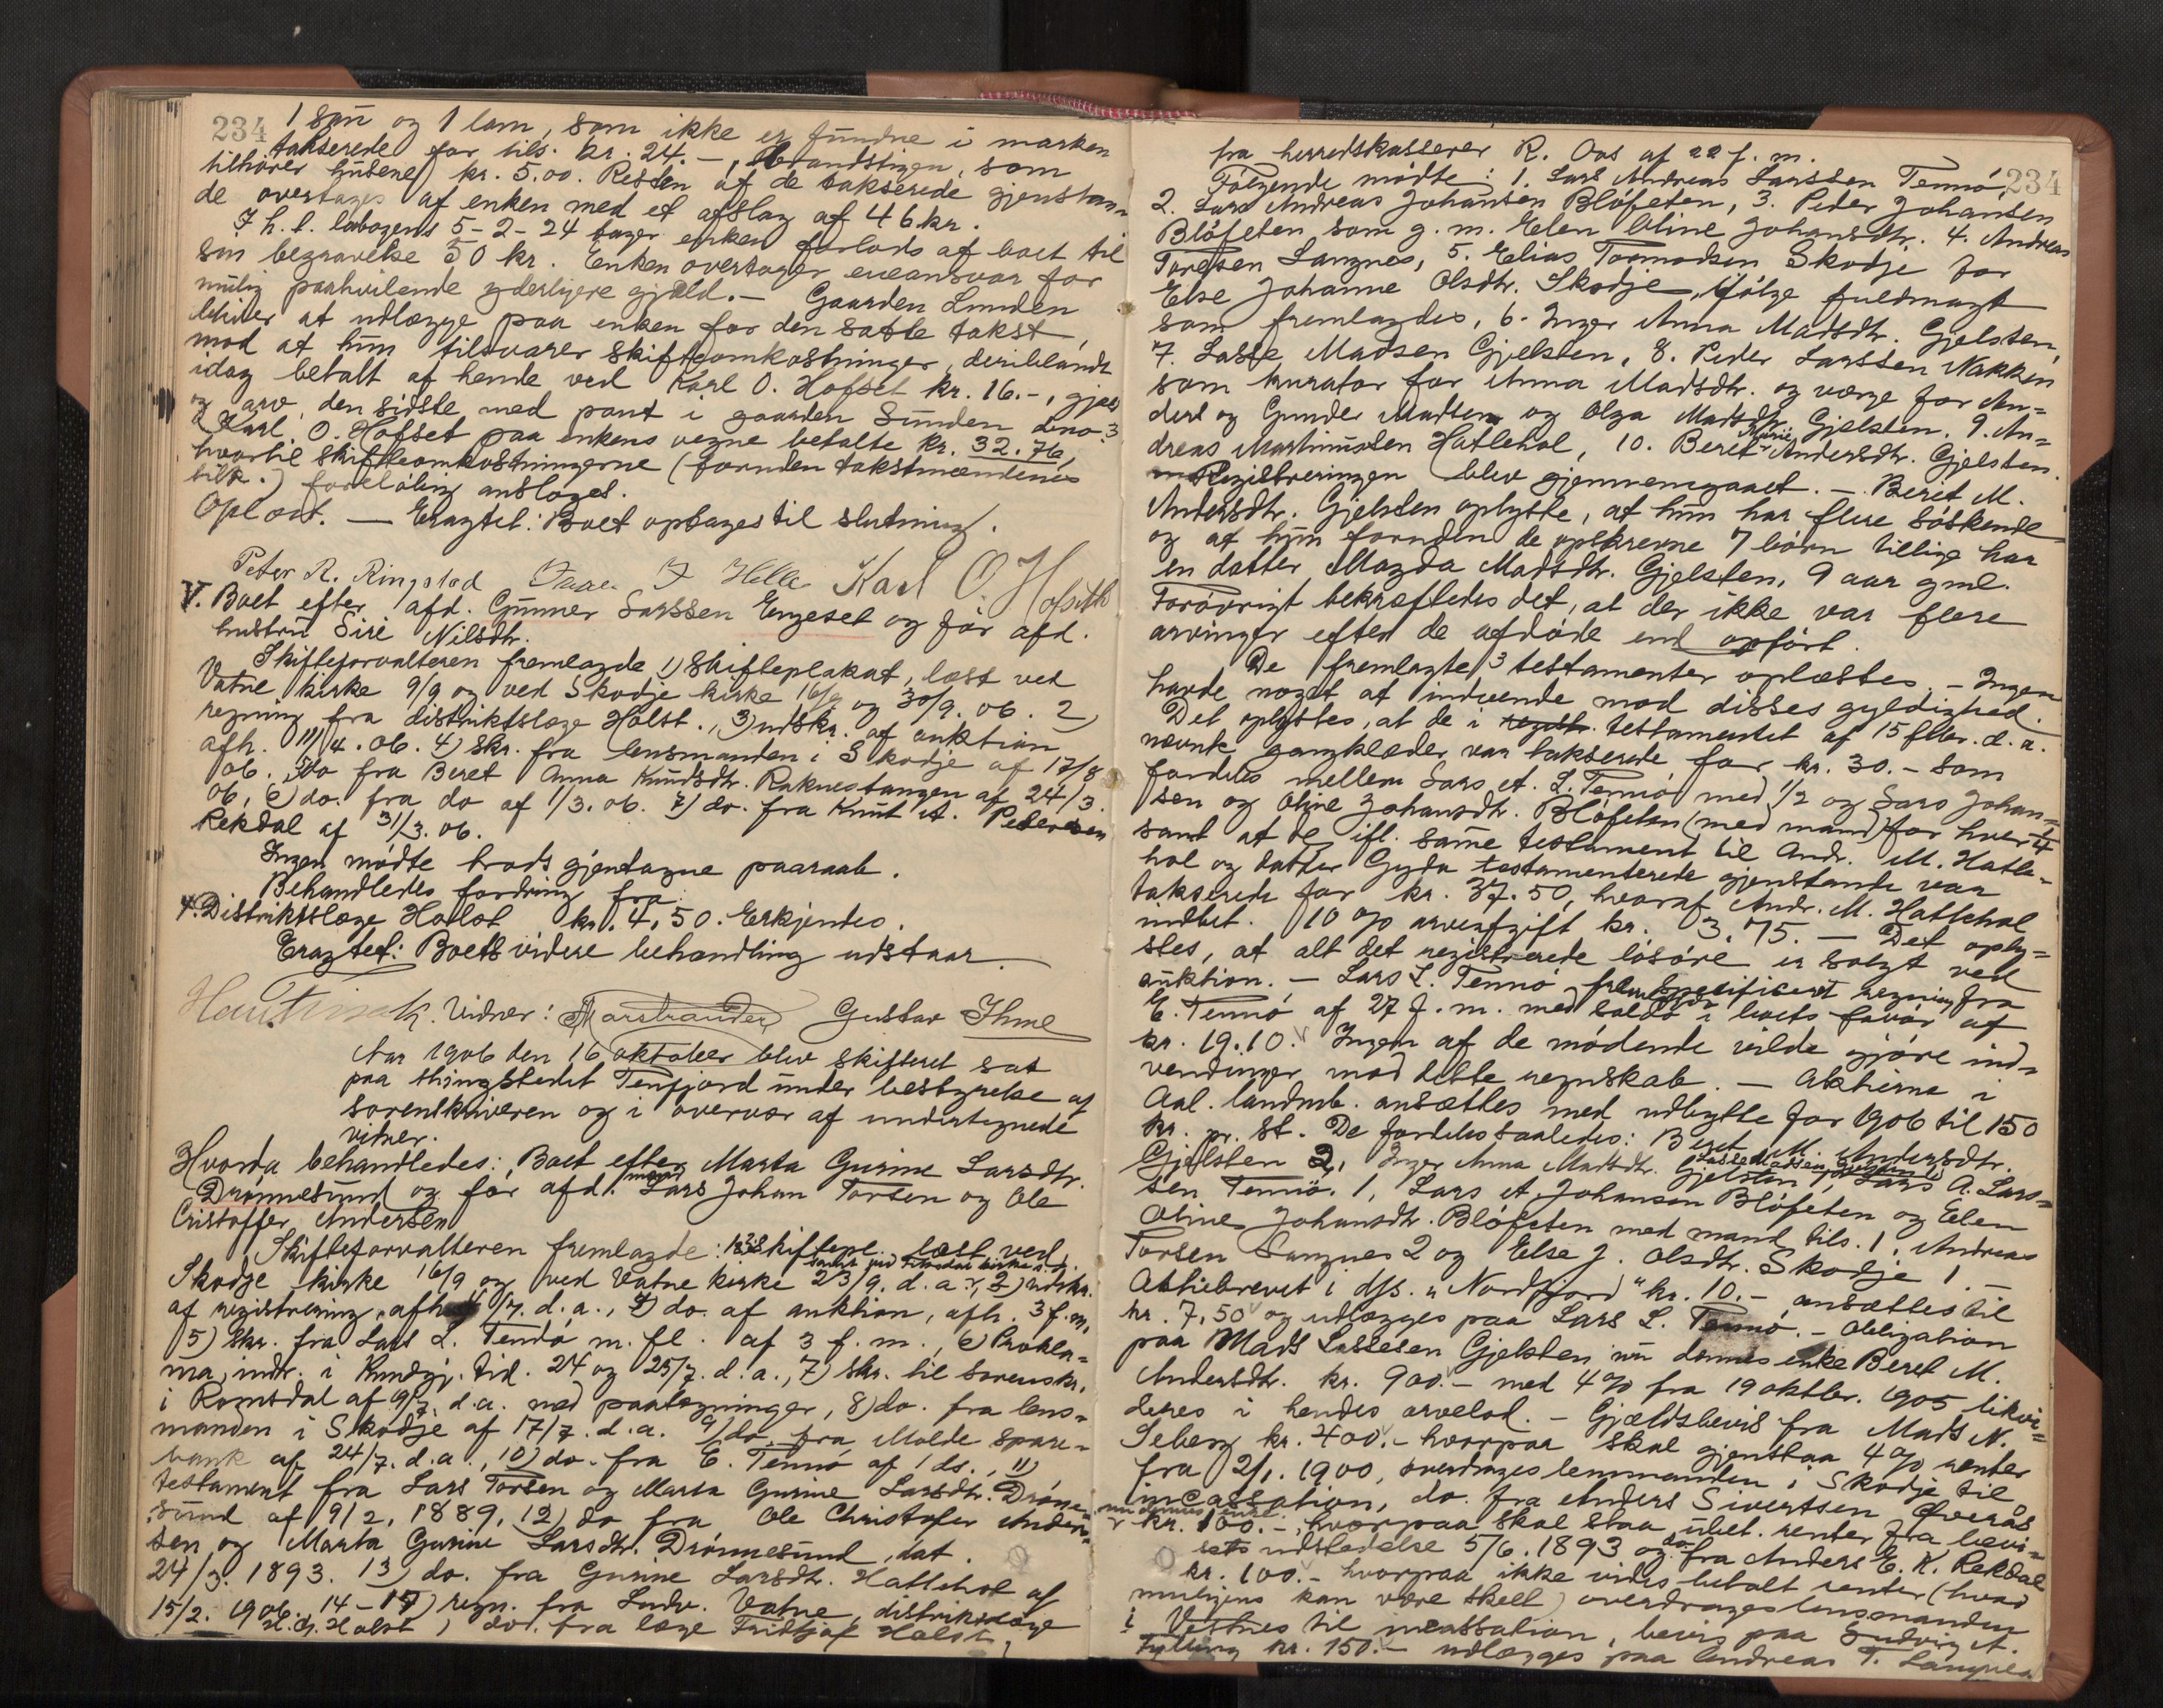 234
1 sau og 1 lam, som ikke er fundne i marken
takserede for tils. kr. 24.–, som
tilhører kr. 5.00. Resten af de takserede gjenstan=
de overtages af enken med et afslag af 46 kr.
I h. t. lovogens 5-2-24 tager enken forlods af boet til
sin begravelse 50 kr. Enken overtager eneansvar for
mulig paahvilende yderligere gjæld.– Gaarden Lunden
bliver at udlægge paa enken for den satte takst,
mod at hun tilsvarer skifteomkostninger, deriblandt
idag betalt af hende ved Karl O. Hofset kr. 16.–, gjæld
og arv, den sidste med pant i gaarden Lunden
Karl O. Hofset paa enkens vegne betalte kr. 32.76,
hvortil skifteomkostningerne (foruden takstmændenes
) foreløbig ansloges.
Oplæst. — Eragtet: Boet optages til slutning.
Peter R. Ringstad Helle Karl O. Hofseth
V. Boet efter afd. Gunner Larssen Engeset og før afd.
hustru Siri Nilsdtr.
Skifteforvalteren fremlagde 1) Skifteplakat, læst ved
Vatne kirke 9/9 og ved Skodje kirke 16/9 og 30/9. 06. 2)
regning fra distriktslæge Holst., 3) udskr. af auktion
afh. 11/4. 06. 4) Skr. fra lensmanden i Skodje af 17/8
06. 5) do fra Beret Anna Knudsdtr. Raknestangen af 24/3.
06, 6) do. fra do af 1/3. 06. 7) do. fra Knut A. Pedersen
Rekdal af 31/3. 06.
Ingen mødte trods gjentagne paaraab.
Behandledes fordring fra:
1. Distriktslæge Holst kr. 4.50. Erkjendes.
Eragtet: Boets videre behandling udstaar.
Vidner: Marstrander Gustav Ihme
Aar 1906 den 16 oktober blev skifteret sat
paa thingstedet Tenfjord under bestyrelse af
sorenskriveren og i overvær af undertegnede
vidner.
Hvorda behandledes: Boet efter Marta Gurine Larsdtr.
Drønnesund og før afd. mænd Lars Johan Torsen og Ole
Cristoffer Andersen
Skifteforvalteren fremlagde: Skiftepl. læst ved
Skodje kirke 16/9 og ved Vatne kirke 23/9. d. a., udskr.
af registrering, afh. d. a., 4) do. af auktion, afh. 3 f. m.,
5) Skr. fra Lars L. Tennø m. fl. af 3 f. m., 6) Prokla=
ma, indr. i Kundgj. tid. 24 og 25/7. d. a., 7) skr. til sorenskr.
i Romsdal af 9/7. d. a. med paategninger, 8) do. fra lens=
manden i Skodje af 17/7. d. a. 9) do. fra Molde spare=
bank af 24/7. d. a., 10) do. fra E. Tennø af 1 ds., 11)
testament fra Lars Torsen og Marta Gurine Larsdtr. Drønne=
sund af 9/2. 1889, 12) do fra Ole Christofer Ander=
sen og Marta Gurine Larsdtr. Drønnesund, dat.
24/3. 1893. 13) do. fra Gurine Larsdtr. Hatlehol af
15/2. 1906. 14-15) regn. fra Ludv. Vatne, distriktslæge
Holst, do. fra læge Fridtjof Holst,
234
fra herredskasserer R. Aas af 22 f. m.
Følgende mødte: 1. Lars Andreas Larssen Tennø,
2. Lars Andreas Johansen Bløfeten, 3. Peder Johansen
Bløfeten som g. m. Elen Oline Johansdtr. 4. Andreas
Toresen Langnes, 5. Elias Tormodsen Skodje for
Else Johanne Olsdtr. Skodje, ifølge fuldmagt
som fremlagdes, 6. Inger Anna Madsdtr. Gjelsten,
7. Lasse Madsen Gjelsten, 8. Peder Larssen Nakken
som kurator for Anna Madsdtr. og værge for An=
ders og Gunder Madsen og Olga Madsdtr. Gjelsten. 9. An=
dreas Martinussen Hatlehol, 10. Beret Marie Andersdtr. Gjelsten.
Registreringen blev gjennemgaaet. — Berit M.
Andersdtr. Gjelsten oplyste, at hun har flere søskende
og at hun foruden de opskrevne 7 børn tillige har
en datter Magda Madsdtr. Gjelsten, 9 aar gml.
Forøvrigt bekræftedes det, at der ikke var flere
arvinger efter de afdøde end opført.
De fremlagte 3 testamenter oplæstes. – Ingen
havde noget at indvende mod disses gyldighed.
Det oplystes, at de i testamentet af 15 febr. d. a.
nævnte gangklæder var takserede for kr. 30.– som
fordeles mellem Lars A. L. Tennø med 1/2 og Lars Johan=
sen og Oline Johansdtr. Bløfeten (med mand) for hver 1/4
samt at de ifl. samme testament til Andr. M. Hatle=
hol og datter Gyda testamenterede gjenstande var
takserede for kr. 37.50, hvoraf Andr. M. Hatlehol
udbet. 10 % arveafgift kr. 3.75. — Det oply=
stes, at alt det registrerede løsøre er solgt ved
auktion. – Lars L. Tennø fremlagde specificeret regning fra
E. Tennø af 27 f. m. med saldo i boets favør af
kr. 19.10. Ingen af de mødende vilde gjøre ind=
vendinger mod dette regnskab. — Aktierne i
Aal. landmb. ansættes med udbytte for 1906 til 150
kr. pr. st. De fordeles saaledes: Beret M. Andersdtr.
Gjelsten 2, Inger Anna Madsdtr. Gjelsten, Lasse Madsen Gjelsten, Lars A. Lars=
sen Tennø. 1, Lars A. Johansen Bløfeten og Elen
Oline Johansdtr. Bløfeten med mand tils. 1, Andreas
Torsen Langnes 2 og Else J. Olsdtr. Skodje 1. –
Aktiebrevet i d/s. "Nordfjord" kr. 10.– ansættes til
kr. 7,50 og udlægges paa Lars L. Tennø. – Obligation
paa Mads Lassesen Gjelsten nu dennes enke Beret M.
Andersdtr. kr. 900.– med 4 % fra 19 oktbr. 1905 likvi=
deres i hendes arvelod. – Gjældsbevis fra Mads N.
Seberg kr. 400.– hvorpaa skal gjenstaa 4 % renter
fra 2/1. 1900, overdrages lensmanden i Skodje til
incassation, do. fra Anders Sivertsen Øveraas
nu dennes enke kr. 100.–, hvorpaa skal staa ubet. renter fra bevi=
sets udstedelse 5/6. 1893 og do. fra Anders E. K. Rekdal
kr. 100.– hvorpaa ikke vides betalt renter (hvad
muligens kan være skeet) overdrages lensmanden
i Vestnes til incassation, bevis paa Ludvig A.
kr. 150.– udlægges paa Andreas T. Langnes